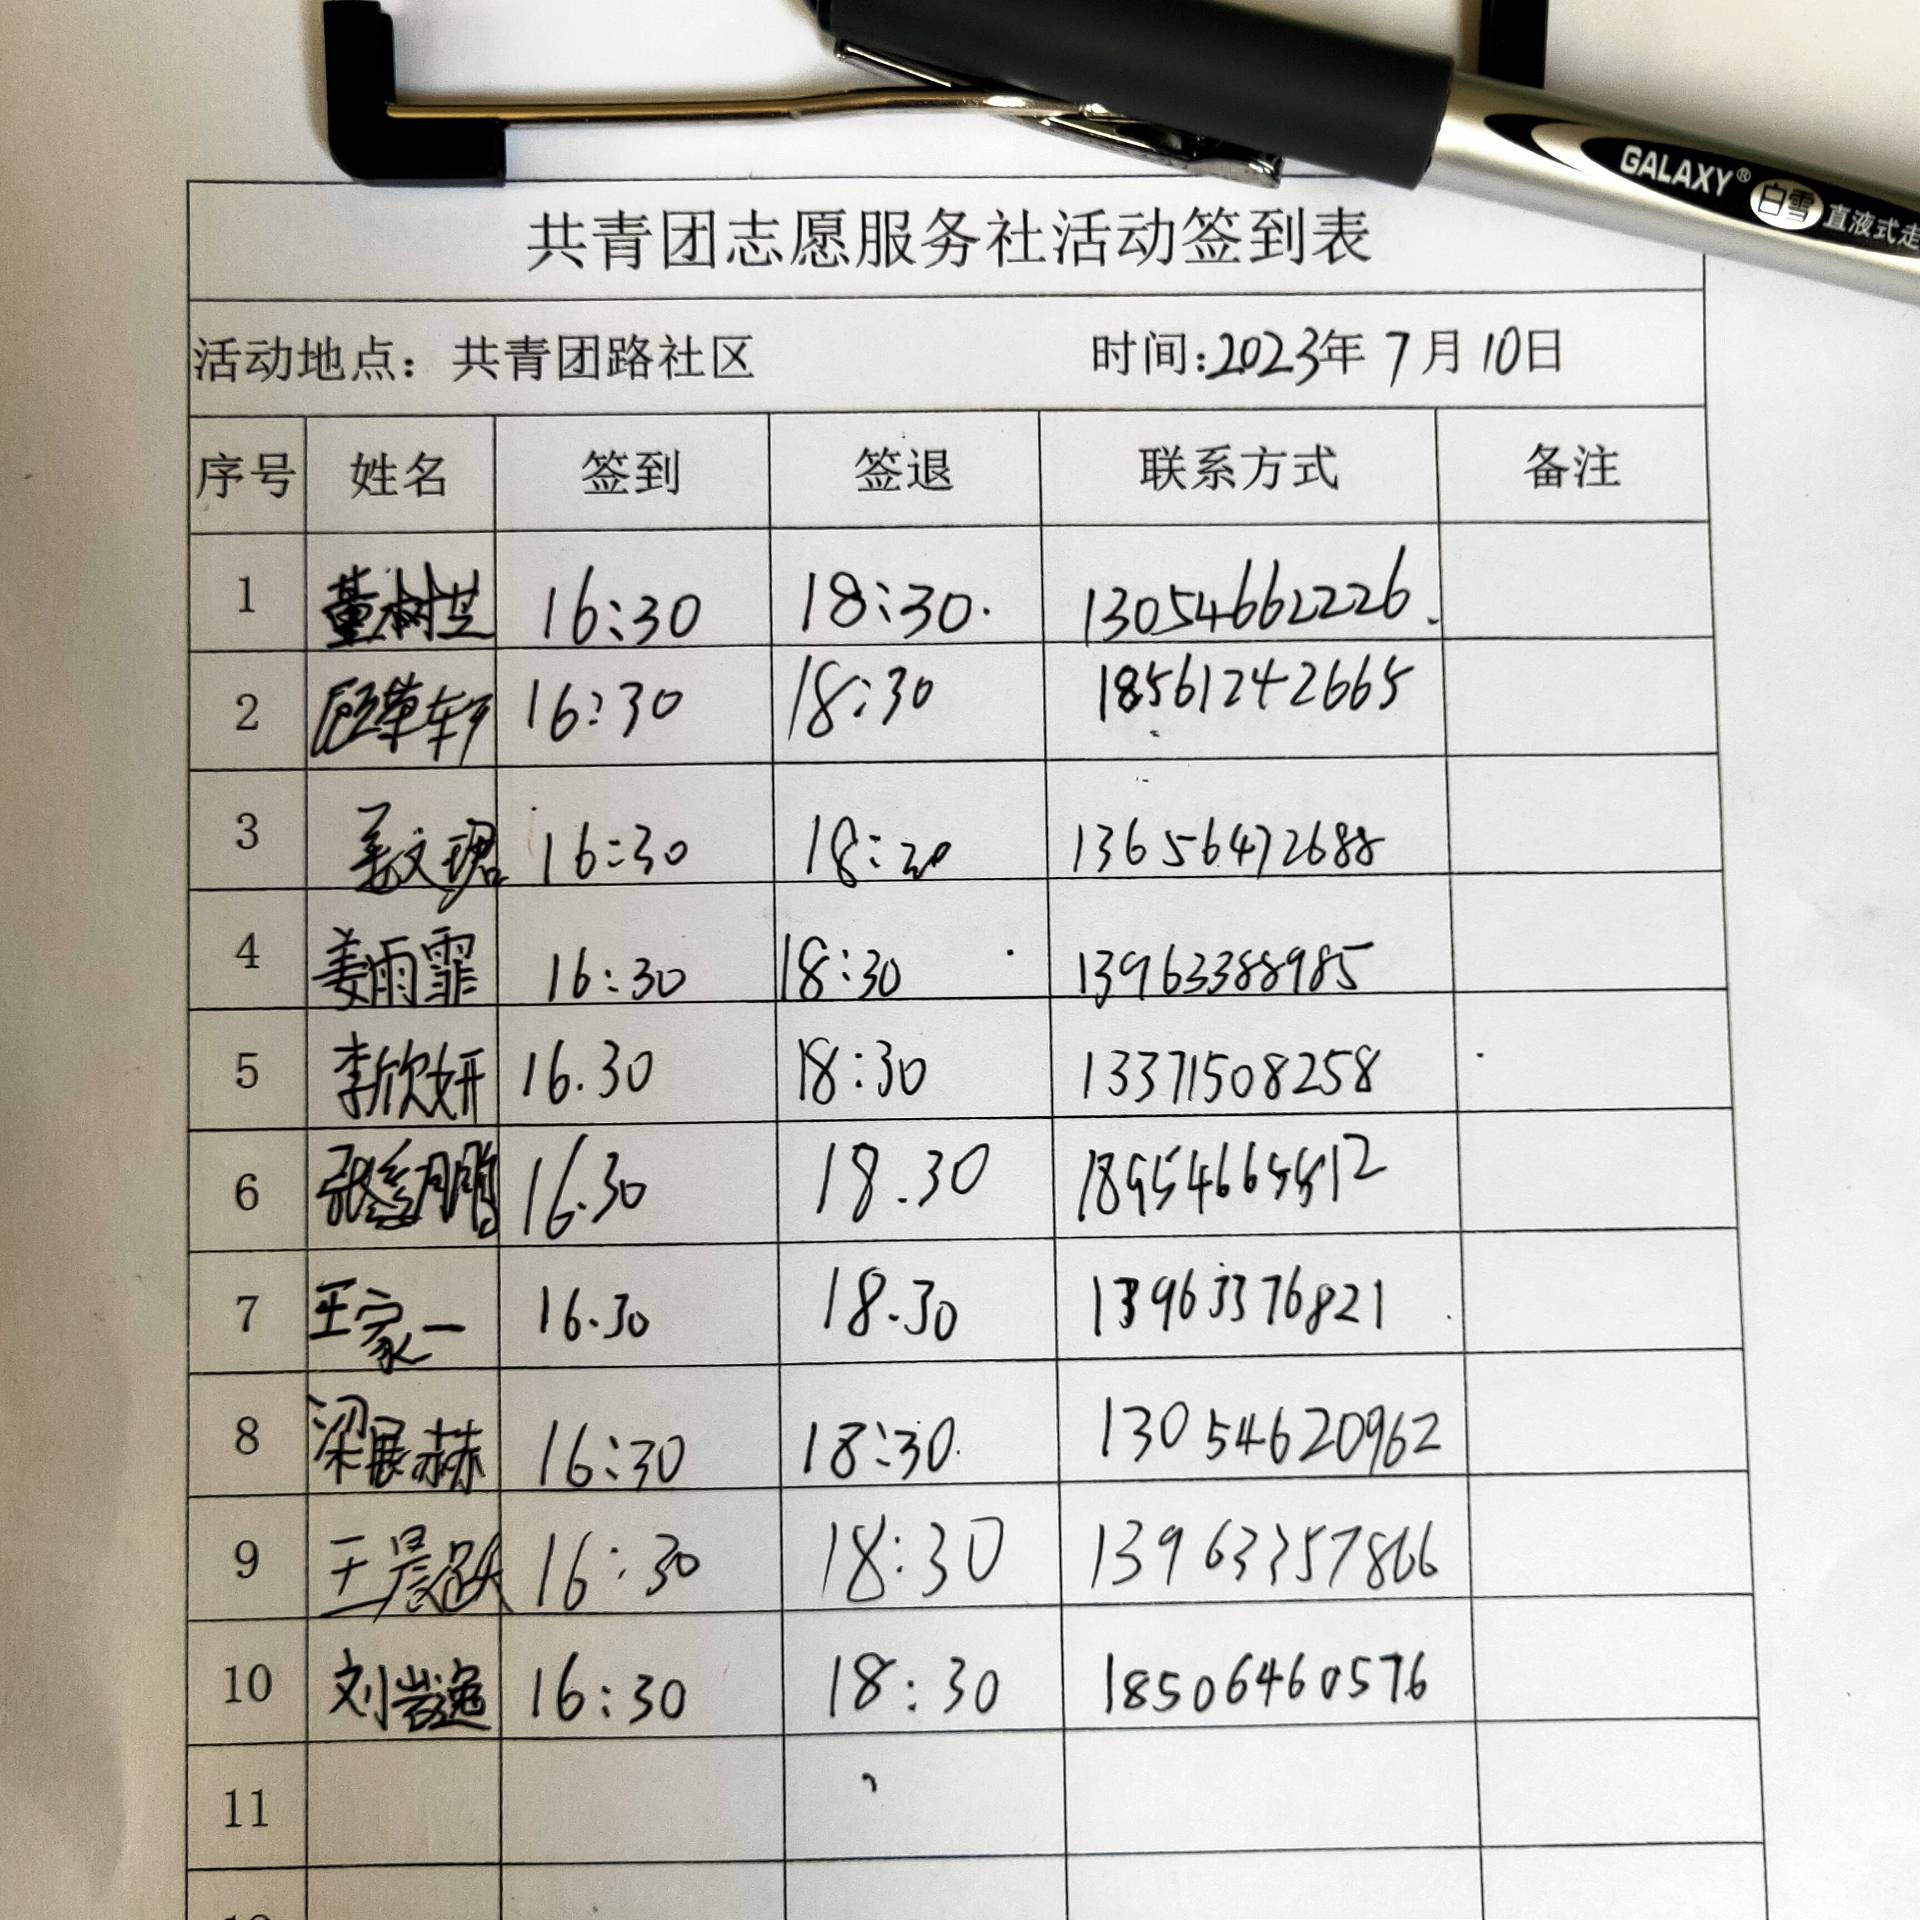 GALAXY® 白雪 直液式走
共青团志愿服务社活动签到表
活动地点：共青团路社区 时间:2023年7月10日
序号 姓名 签到 签退 联系方式 备注
1 16:30 18:30. 13054662226.
2 16:30 18:30 18561242665
3 姜文珺 16:30 18:30 13656472688
4 姜雨霏 16:30 18:30 13963388985
5 李欣妍 16.30 18:30 13371508258
6 16.30 18.30
7 王家一 16.30 18.30 13963376821
8 梁展赫 16:30 18:30. 13054620962
9 王晨跃 16:30 18:30 13963357866
10 刘岩逸 16:30 18:30 18506460576
11